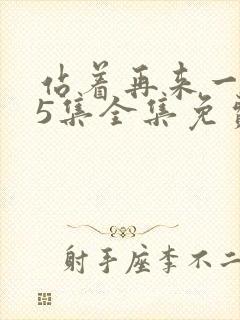 佔着再来一
5集全集免
射手座李不二